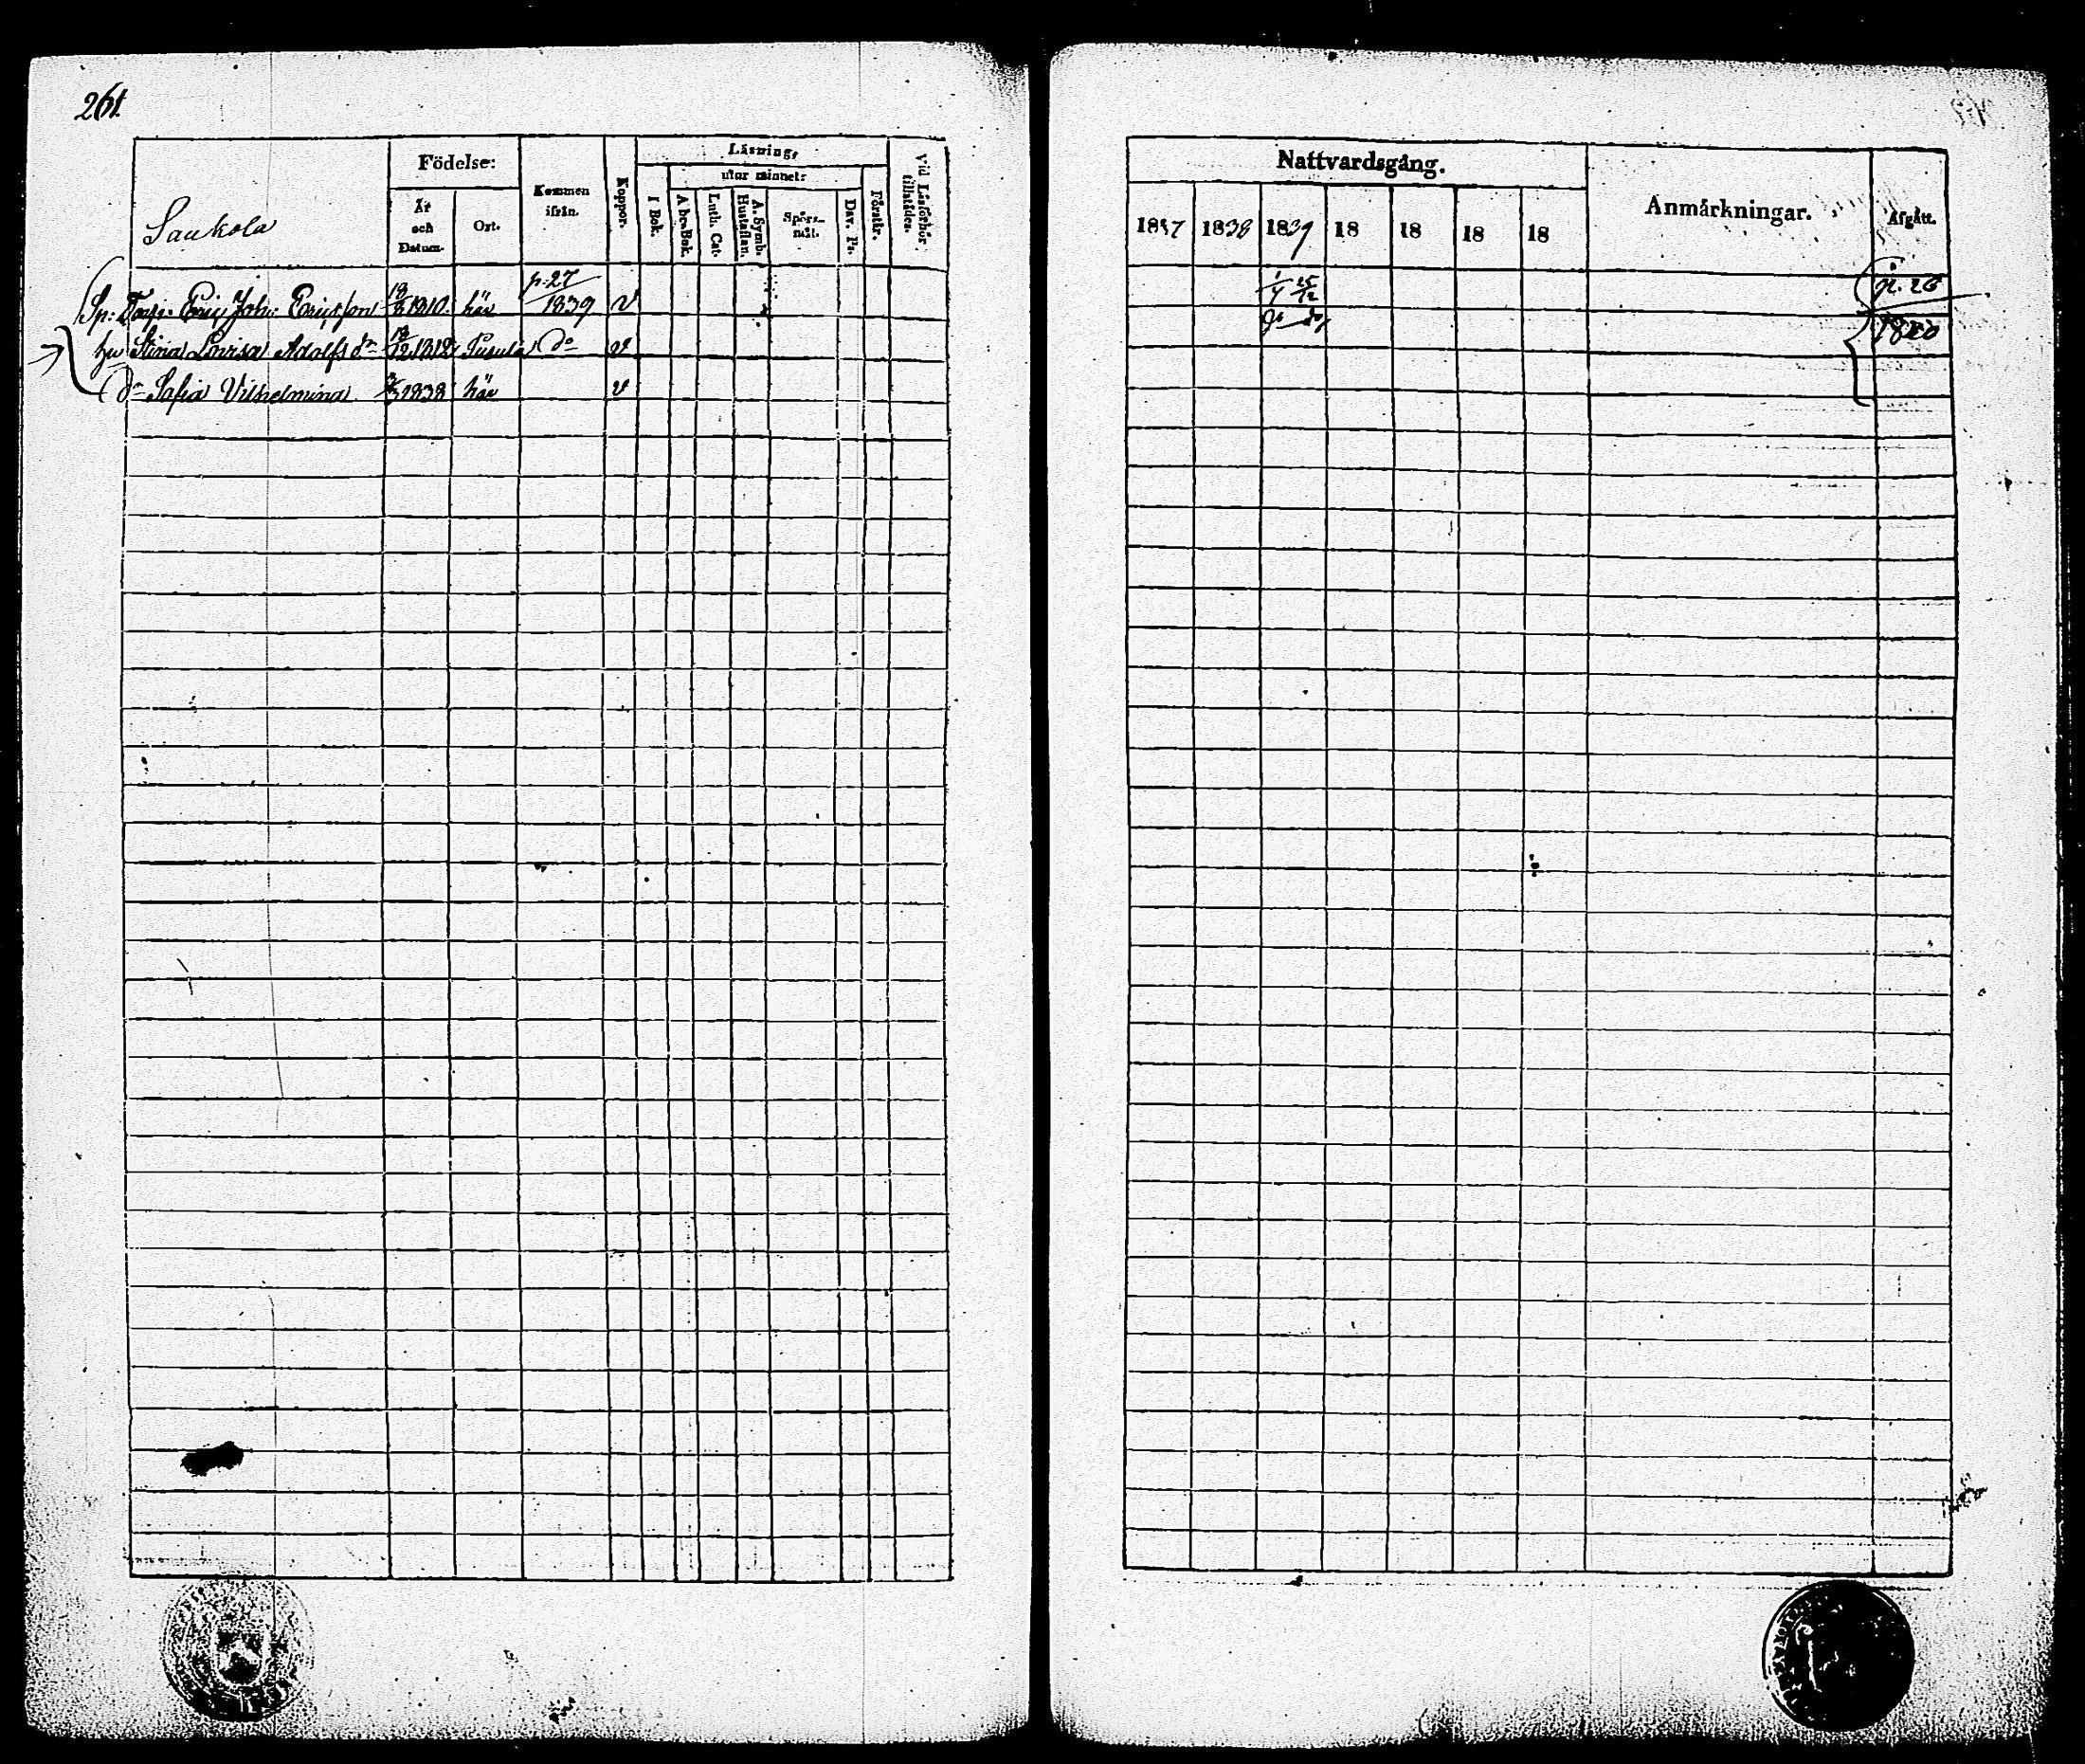 261.
Saukola
Födelse:
År och Datum.
Ort.
Kommen ifrån.
Koppor.
Läsning,
utur minnet:
I Bok.
Abc-Bok.
Luth. Cat.
A. Symb. Hustaflan.
Spörsmål.
Dav. Ps.
Förstår.
Vid Läsförhör tillstädes.
Nattvardsgång.
1837 1838 1839 18 18 18 18
Anmärkningar.
Afgått.
Sp: Torp: Eric Joh: Ericsson 1810. här p. 27 1839 v
hu Stina Lovisa Adolfs dr 1812 Pusula do v
dr Sofia Vilhelmina 1838 här v
1/4 25/12
do do
p. 26
1840